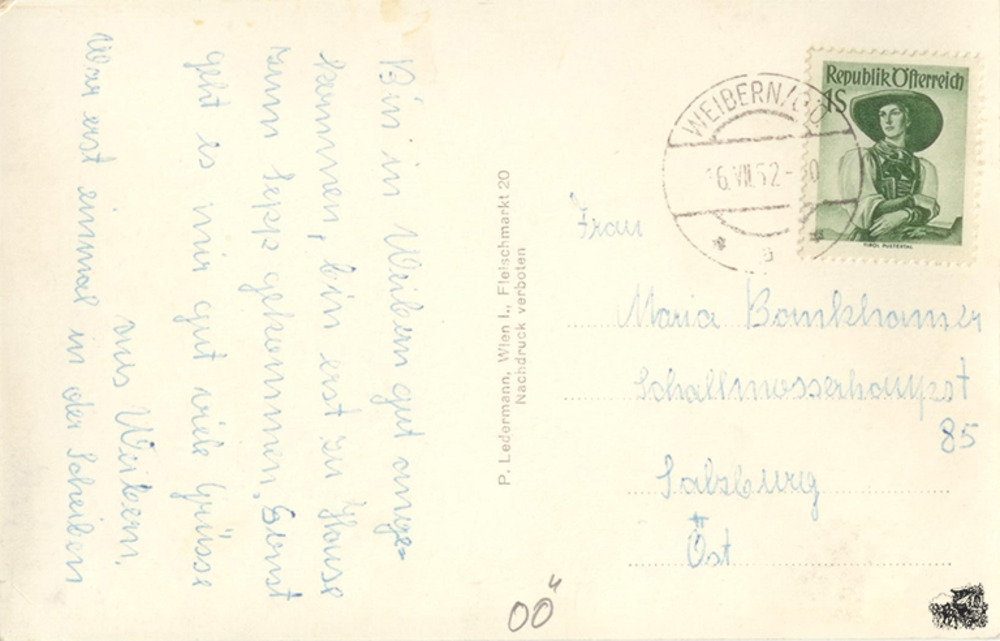 Bin in Weibern gut ange-
kommen, bin erst zu Hause
zum gekommen. Sonst
geht es mir gut viele Grüsse
aus Weibern.
War erst einmal in der Scheiben
P. Ledermann, Wien I., Fleischmarkt 20
Nachdruck verboten
WEIBERN/OÖ
16.VII.52-
Republik Österreich
1S
TIROL PUSTERTAL
Frau
Maria Bankhamer
Schallmooserhauptst
85
Salzburg
Öst
OÖ"